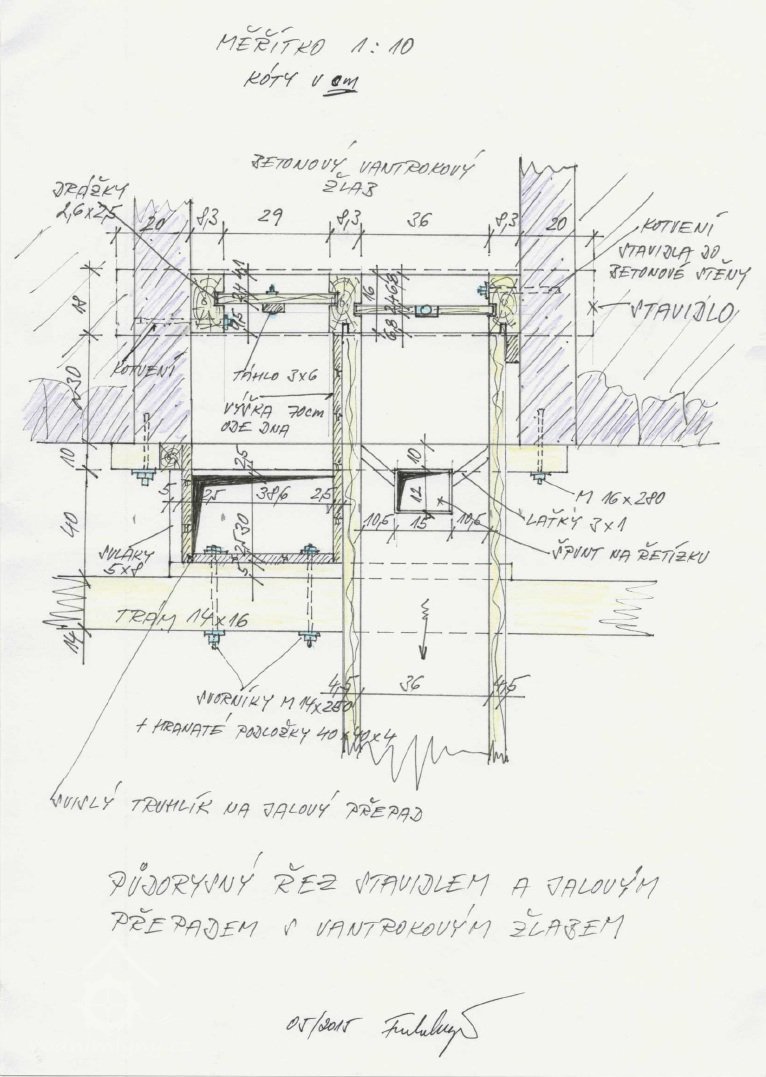 MĚŘÍTKO 1:10
KÓTY V cm
BETONOVÝ VANTROKOVÝ
ŽLAB
DRÁŽKY
2,6x2,5
20
8,3
29
8,3
36
8,3
20
KOTVENÍ
STAVIDLA DO
BETONOVÉ STĚNY
STAVIDLO
18
16
KOTVENÍ
TÁHLO 3x6
VÝŠKA 70cm
ODE DNA
~30
10
40
14
25
5
2,5
38,6
2,5
30
2,5
5
10
12
10,5
15
10,5
M 16x280
LAŤKY 3x1
ŠPUNT NA ŘETÍZKU
SVLAKY
5x8
TRÁM 14x16
4,5
36
4,5
SVORNÍKY M 14x250
+ HRANATÉ PODLOŽKY 40x40x4
SVISLÝ TRUHLÍK NA JALOVÝ PŘEPAD
PŮDORYSNÝ ŘEZ STAVIDLEM A JALOVÝM
PŘEPADEM S VANTROKOVÝM ŽLABEM
05/2015